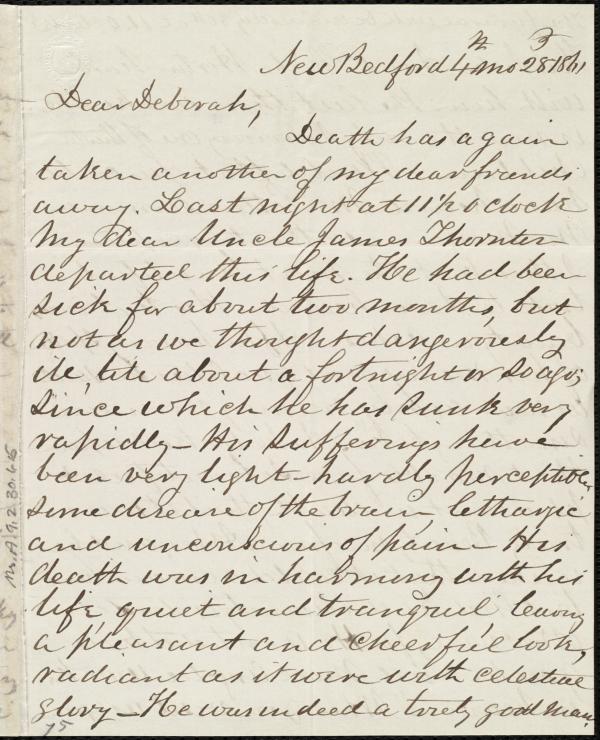 New Bedford 4th mo 28th 1861
Dear Deborah,
Death has again
taken another of my dear friends
away. Last night at 11 1/2 o clock
my dear Uncle James Thornton
departed this life. He had been
sick for about two months, but
not as we thought dangerously
ill, till about a fortnight or so ago;
since which he has sunk very
rapidly - His sufferings have
been very light - hardly perceptible,
some disease of the brain, lethargic
and unconscious of pain - His
death was in harmony with his
life, quiet and tranquil, leaving
a pleasant and cheerful look,
radiant as it were with celestial
glory - He was indeed a truly good man.
75
Ms.A.9.2.30.65